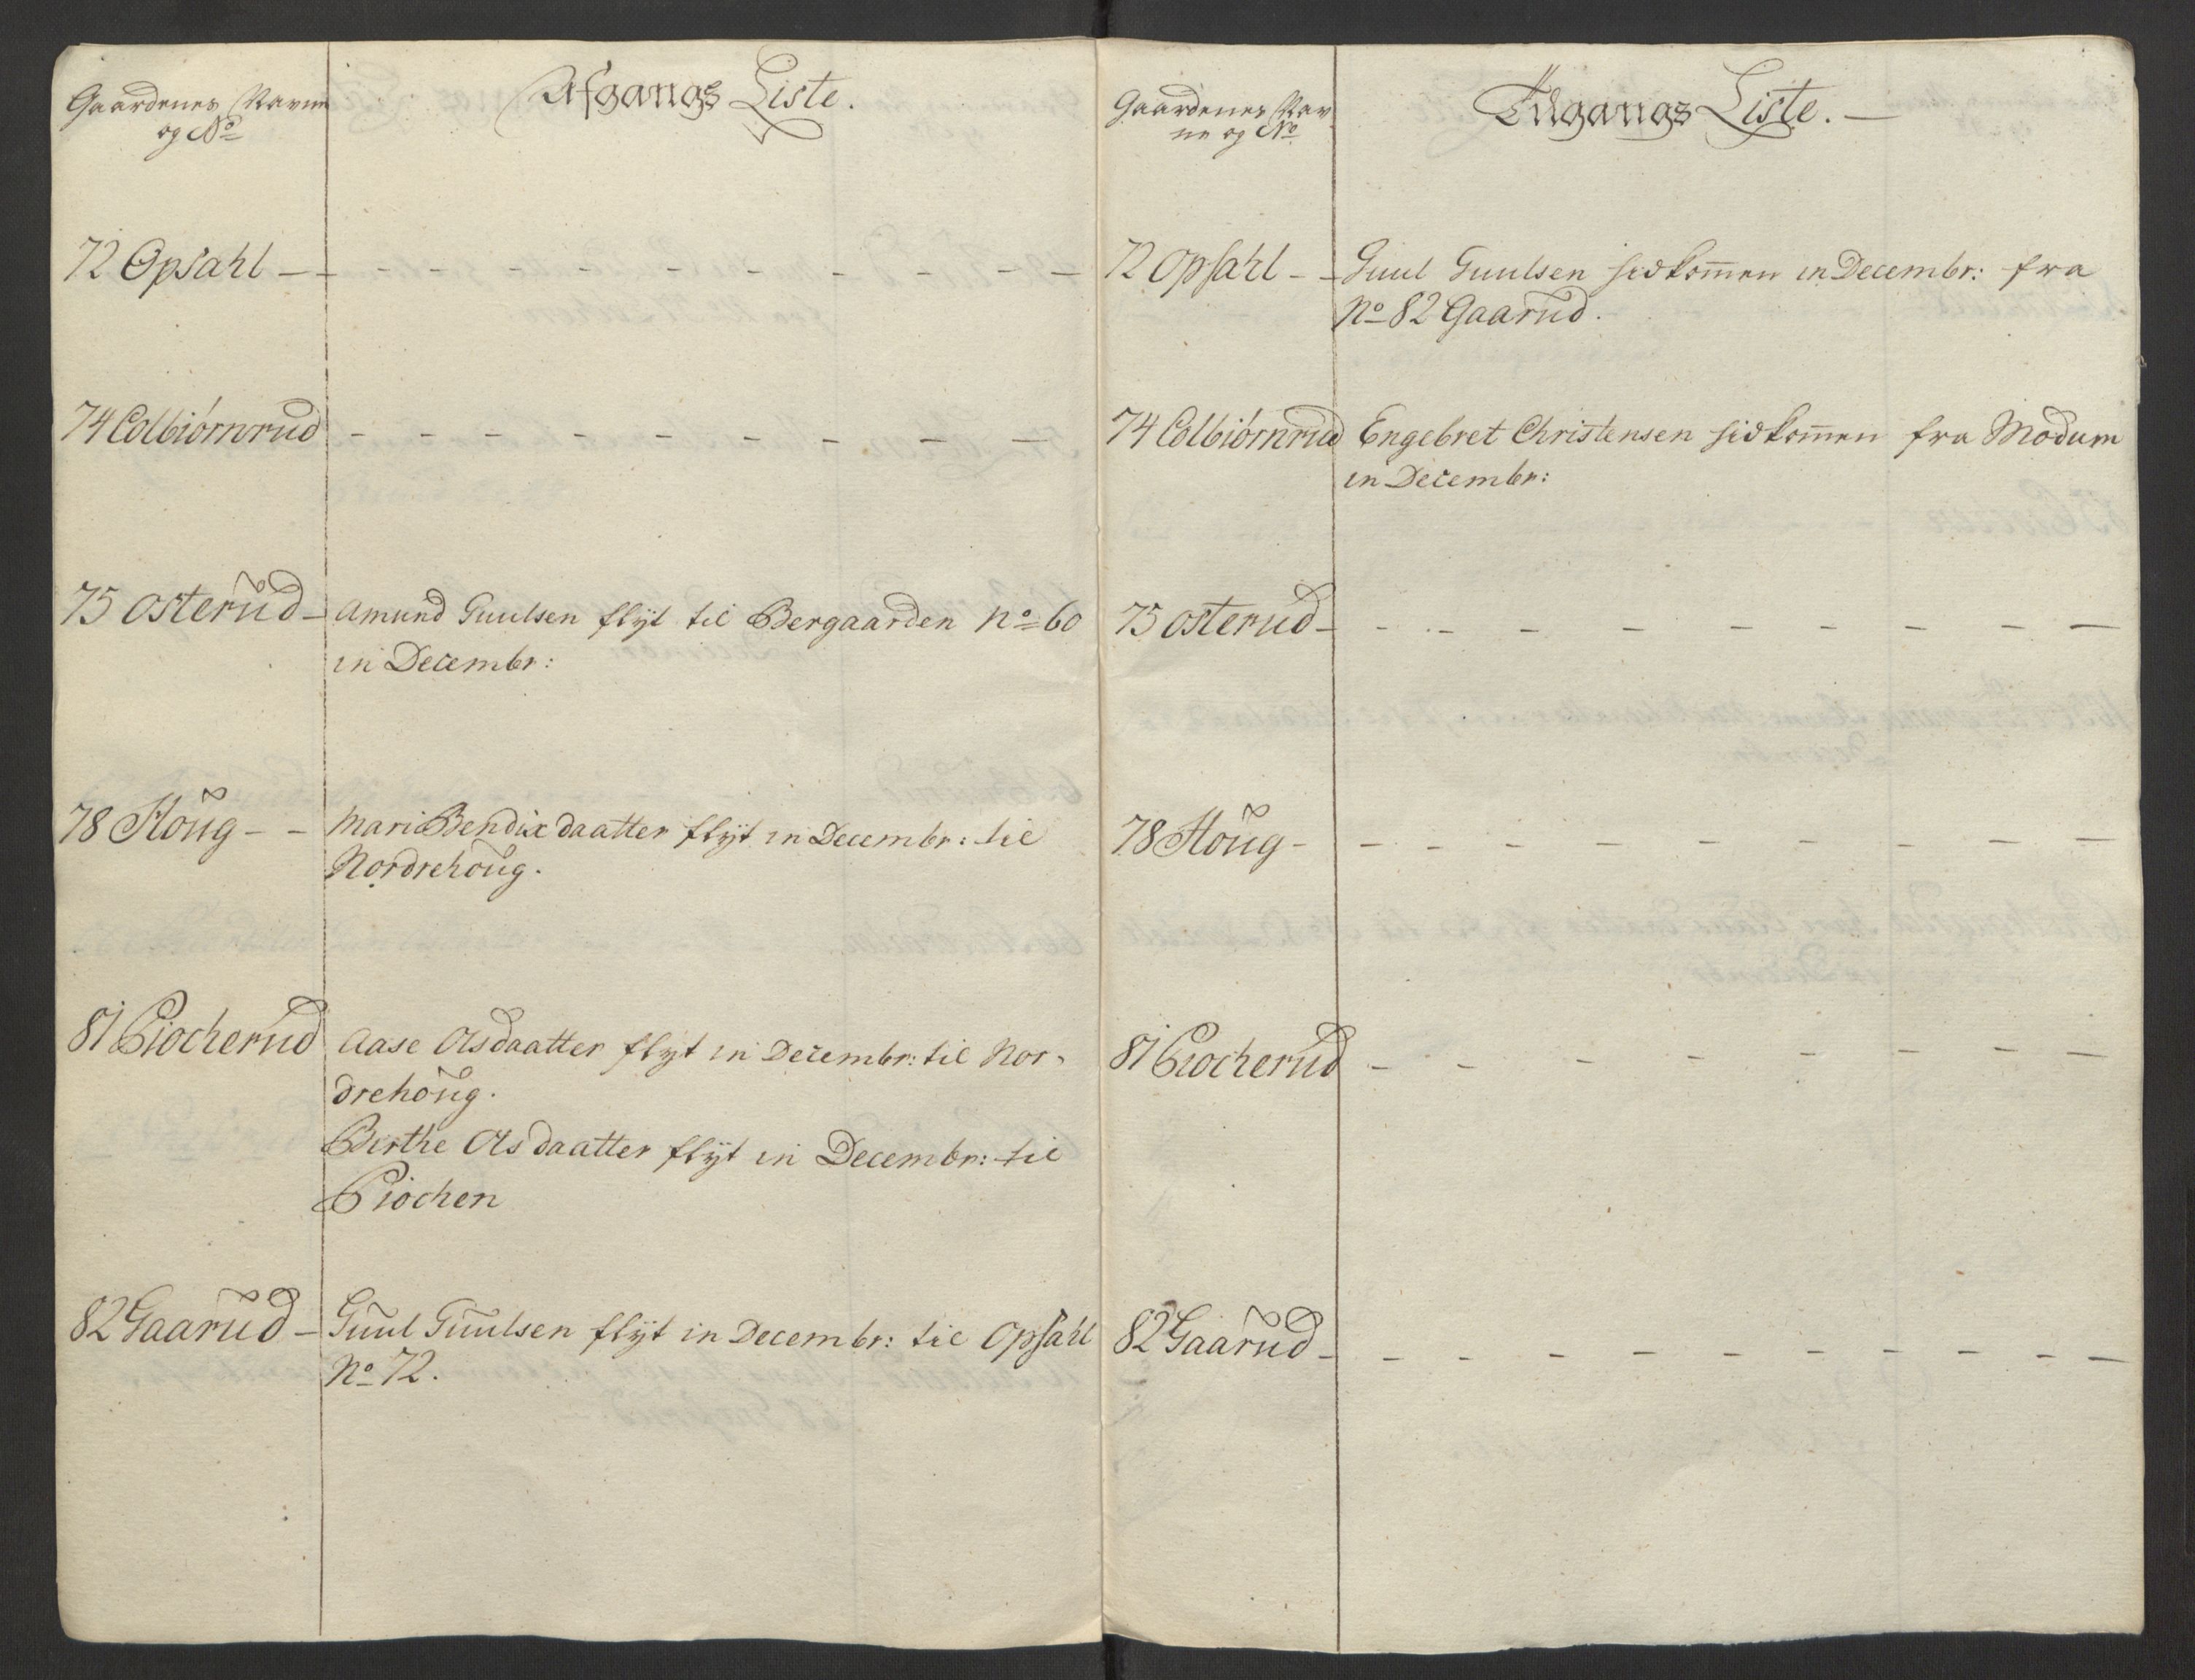 Gaardenes Navne
og No
Afgangs Liste.
72 Opsahl - - - - - - - - - - - -
74 Colbiørnrud - - - - - - - - -
75 Osterud - Amund Guulsen flÿt til Bergaarden No 60
in Decembr:
78 Houg - - Mari Bendixdaatter flÿt in Decembr: til
Nordrehoug.
81 Piocherud Aase Olsdaatter flÿt in Decembr: til Nor-
drehoug.
Birthe Olsdaatter flÿt in Decembr: til
Piochen
82 Gaarud - Guul Guulsen flÿt in Decembr: til Opsahl
No 72.
Gaardenes Nav
ne og No
Tilgangs Liste. -
72 Opsahl - - Guul Guulsen hidkom̄en in Decembr: fra
No 82 Gaarud.
74 Colbiørnrud Engebret Christensen hidkom̄en fra Modum
in Decembr:
75 Osterud - - - - - - - - - - -
78 Houg - - - - - - - - - - -
81 Piocherud - - - - - - - -
82 Gaarud - - - - - - - - - - -